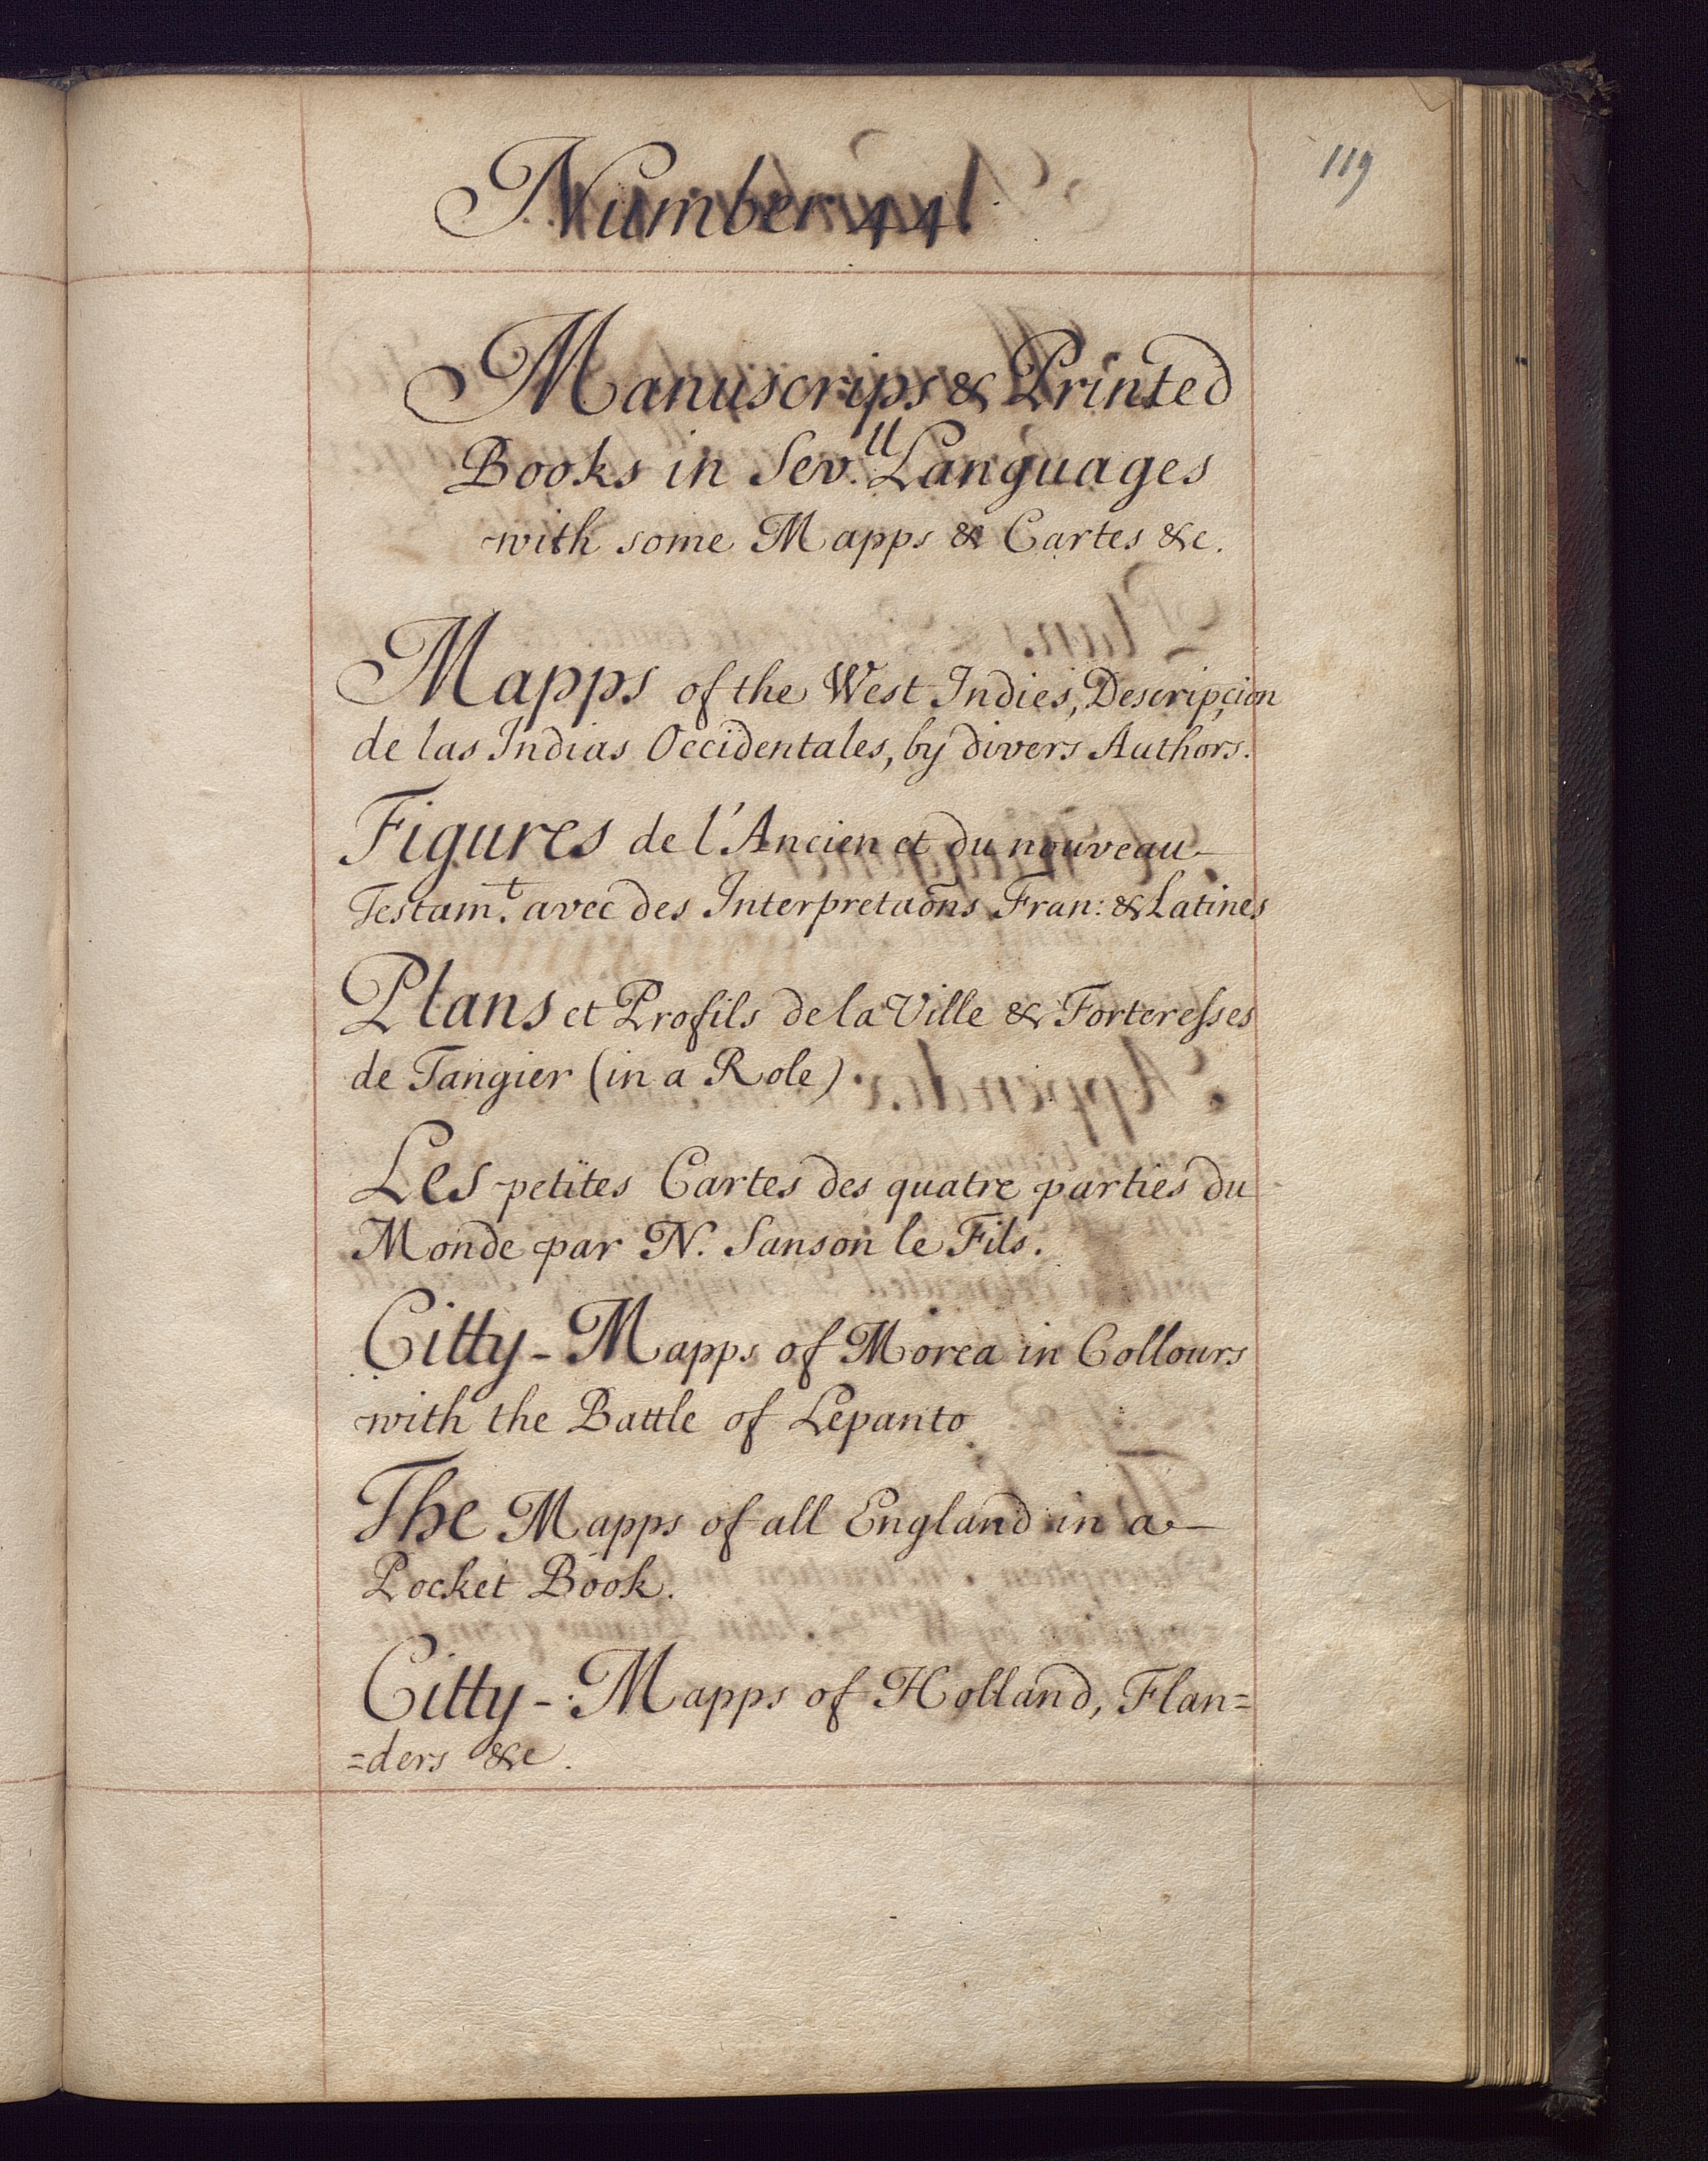 119
Number 441
Manuscrips & Printed
Books in Sev.ll Languages
with some Mapps & Cartes &c.
Mapps of the West Indies, Descripçion
de las Indias Occidentales, by divers Authors.
Figures de l'Ancien et du nouveau
Testam.t avec des Interpretaõns Fran: & Latines
Plans et Profils de la Ville & Forteresses
de Tangier (in a Role)
Les petites Cartes des quatre parties du
Monde par N. Sanson le Fils.
Citty-Mapps of Morea in Collours
with the Battle of Lepanto
The Mapps of all England in a
Pocket Book.
Citty-Mapps of Holland, Flan=
=ders &c.